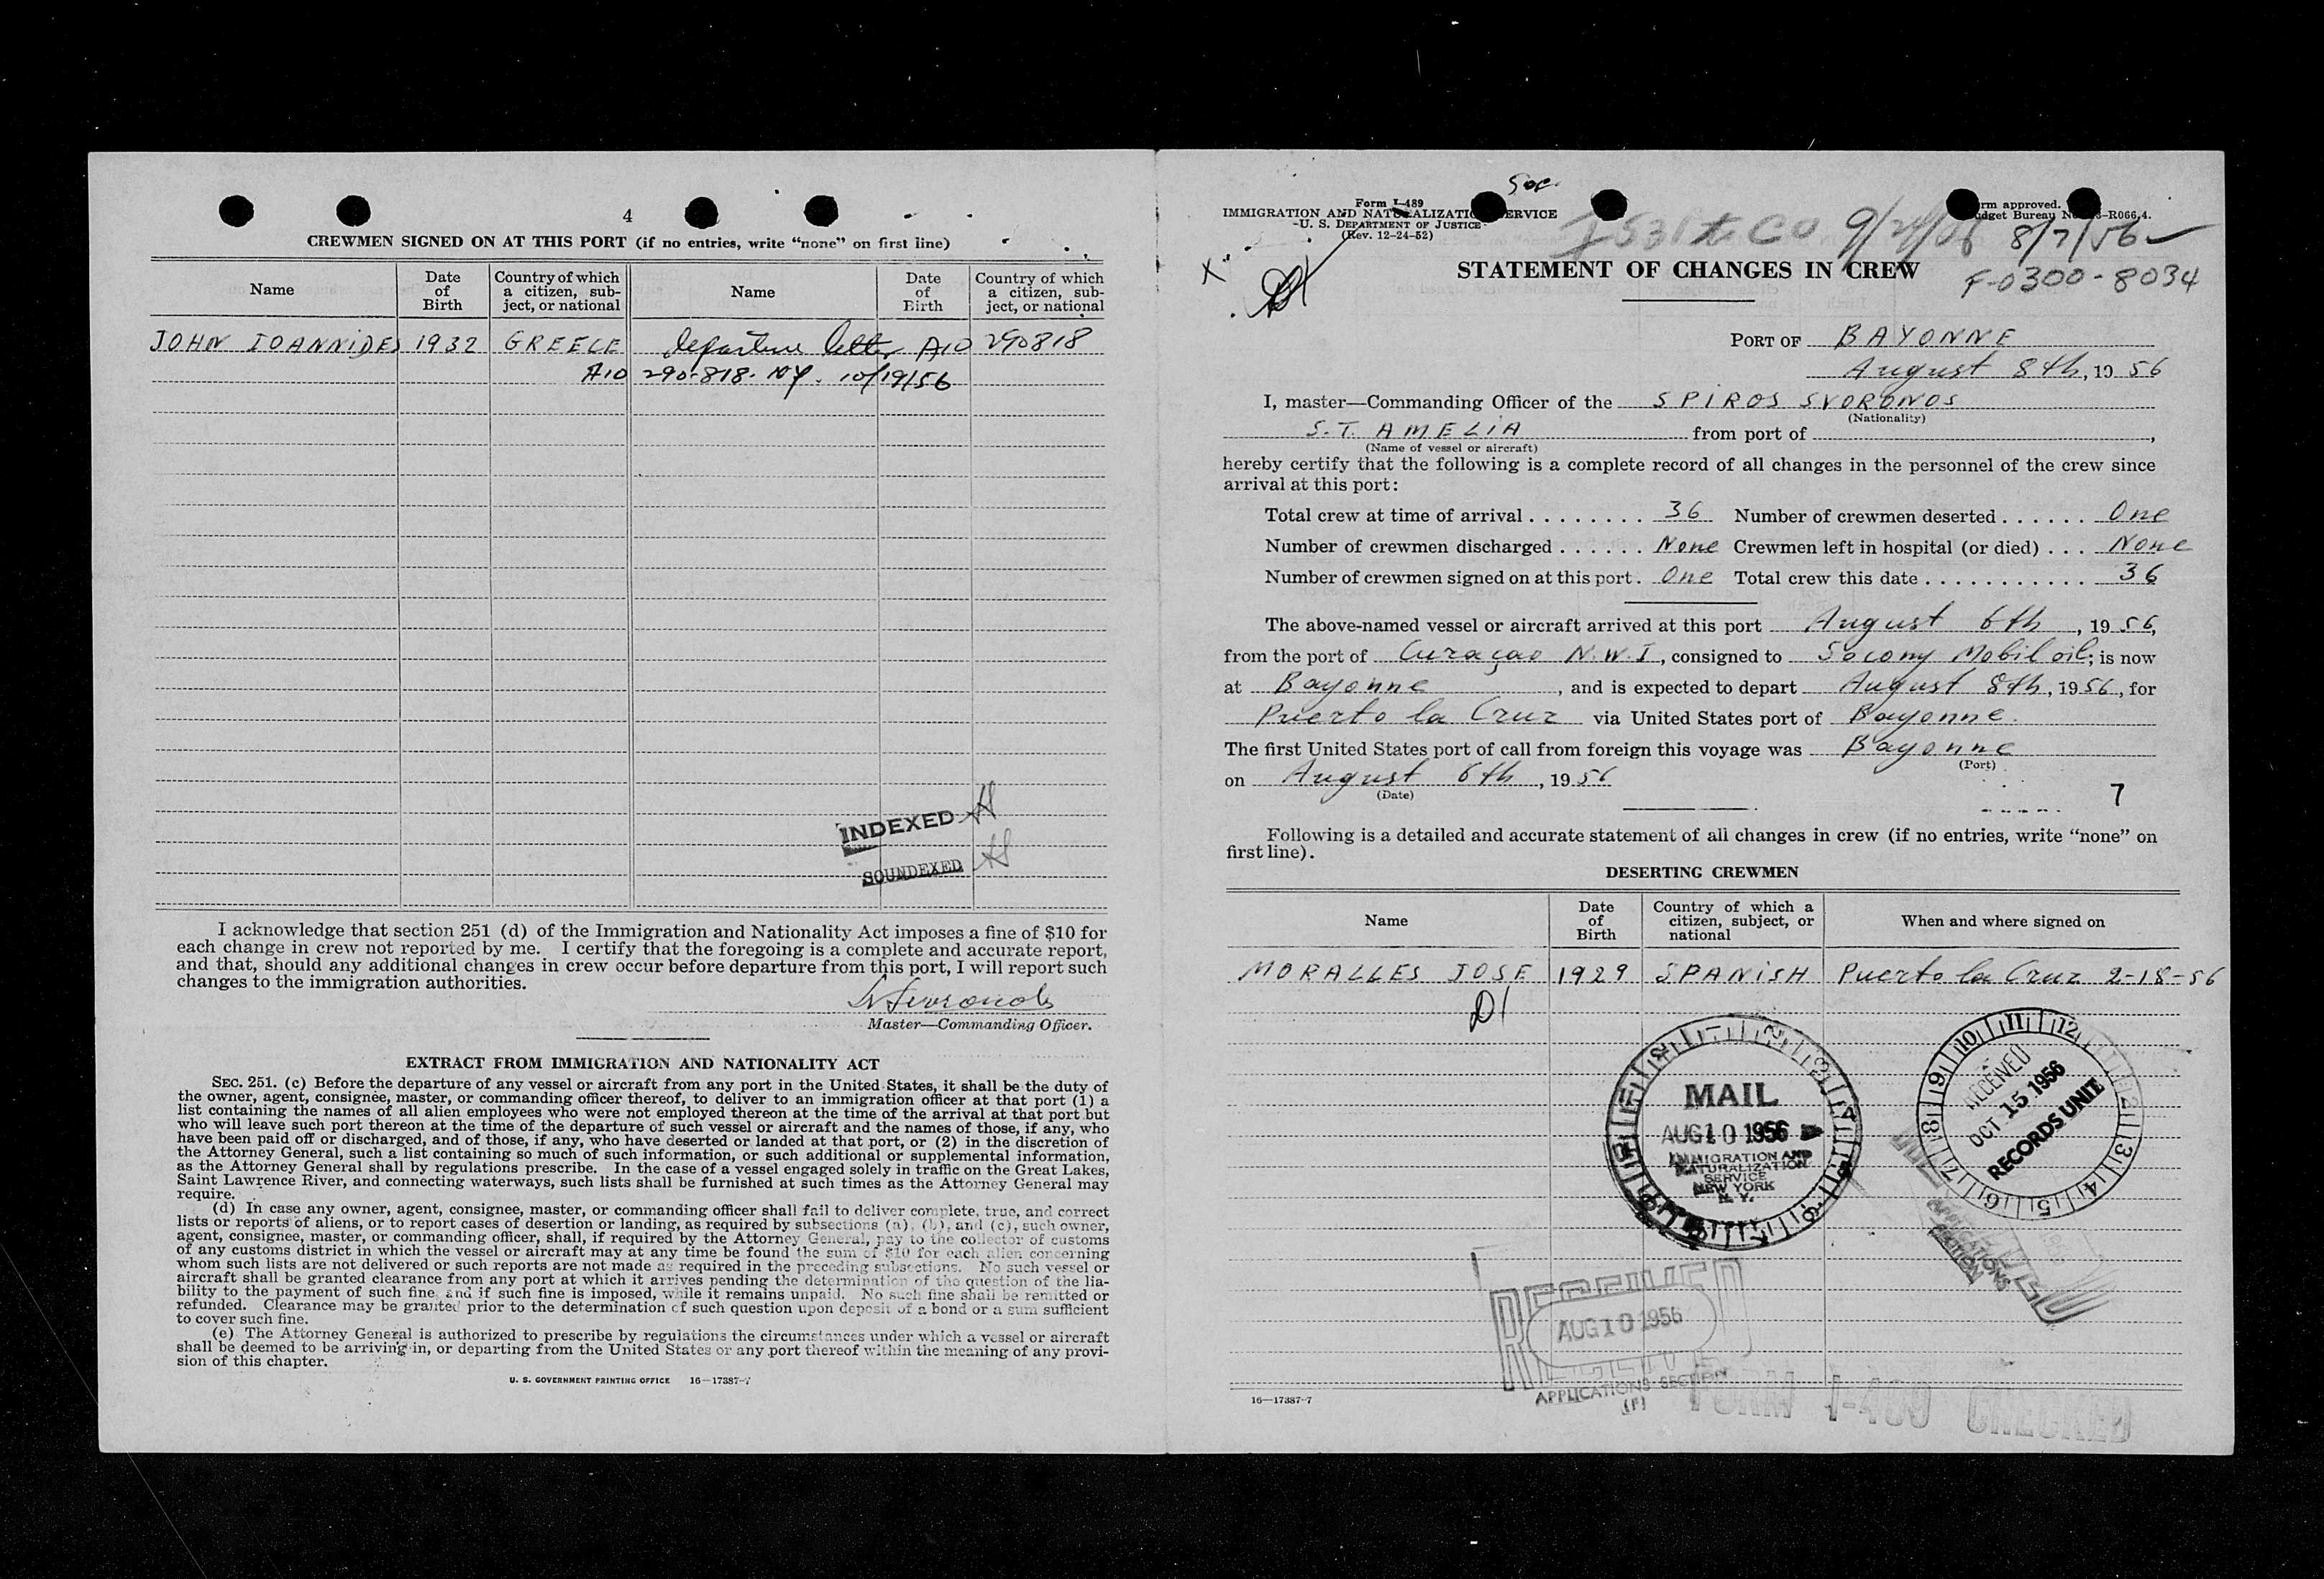 4
CREWMEN SIGNED ON AT THIS PORT (if no entries, write “none” on first line)
Name Date of Birth Country of which a citizen, subject, or national Name Date of Birth Country of which a citizen, subject, or national
JOHN IOANNIDES 1932 GREECE departure letter A10 290818
A10 290-818. NY. 10/19/56
INDEXED
SOUNDEXED
I acknowledge that section 251 (d) of the Immigration and Nationality Act imposes a fine of $10 for
each change in crew not reported by me. I certify that the foregoing is a complete and accurate report,
and that, should any additional changes in crew occur before departure from this port, I will report such
changes to the immigration authorities.
Master—Commanding Officer.
EXTRACT FROM IMMIGRATION AND NATIONALITY ACT
SEC. 251. (c) Before the departure of any vessel or aircraft from any port in the United States, it shall be the duty of
the owner, agent, consignee, master, or commanding officer thereof, to deliver to an immigration officer at that port (1) a
list containing the names of all alien employees who were not employed thereon at the time of the arrival at that port but
who will leave such port thereon at the time of the departure of such vessel or aircraft and the names of those, if any, who
have been paid off or discharged, and of those, if any, who have deserted or landed at that port, or (2) in the discretion of
the Attorney General, such a list containing so much of such information, or such additional or supplemental information,
as the Attorney General shall by regulations prescribe. In the case of a vessel engaged solely in traffic on the Great Lakes,
Saint Lawrence River, and connecting waterways, such lists shall be furnished at such times as the Attorney General may
require.
(d) In case any owner, agent, consignee, master, or commanding officer shall fail to deliver complete, true, and correct
lists or reports of aliens, or to report cases of desertion or landing, as required by subsections (a), (b), and (c), such owner,
agent, consignee, master, or commanding officer, shall, if required by the Attorney General, pay to the collector of customs
of any customs district in which the vessel or aircraft may at any time be found the sum of $10 for each alien concerning
whom such lists are not delivered or such reports are not made as required in the preceding subsections. No such vessel or
aircraft shall be granted clearance from any port at which it arrives pending the determination of the question of the lia-
bility to the payment of such fine, and if such fine is imposed, while it remains unpaid. No such fine shall be remitted or
refunded. Clearance may be granted prior to the determination of such question upon deposit of a bond or a sum sufficient
to cover such fine.
(e) The Attorney General is authorized to prescribe by regulations the circumstances under which a vessel or aircraft
shall be deemed to be arriving in, or departing from the United States or any port thereof within the meaning of any provi-
sion of this chapter.
U. S. GOVERNMENT PRINTING OFFICE 16—17387-7
Soc.
Form I-489
IMMIGRATION AND NATURALIZATION SERVICE
U. S. DEPARTMENT OF JUSTICE
(Rev. 12-24-52)
Form approved.
Budget Bureau No. -R066.4.
8/7/56
F-0300-8034
STATEMENT OF CHANGES IN CREW
PORT OF BAYONNE
August 8th, 1956
I, master—Commanding Officer of the SPIROS SVORONOS
(Nationality)
S.T. AMELIA from port of ,
(Name of vessel or aircraft)
hereby certify that the following is a complete record of all changes in the personnel of the crew since
arrival at this port:
Total crew at time of arrival 36 Number of crewmen deserted One
Number of crewmen discharged None Crewmen left in hospital (or died) None
Number of crewmen signed on at this port One Total crew this date 36
The above-named vessel or aircraft arrived at this port August 6th, 1956,
from the port of Curaçao N.W.I, consigned to Socony Mobil oil; is now
at Bayonne, and is expected to depart August 8th, 1956, for
Puerto la Cruz via United States port of Bayonne.
The first United States port of call from foreign this voyage was Bayonne
(Port)
on August 6th, 1956
(Date)
7
Following is a detailed and accurate statement of all changes in crew (if no entries, write “none” on
first line).
DESERTING CREWMEN
Name Date of Birth Country of which a citizen, subject, or national When and where signed on
MORALLES JOSE 1929 SPANISH Puerto la Cruz 2-18-56
MAIL
AUG 10 1956
IMMIGRATION AND
NATURALIZATION
SERVICE
NEW YORK
N. Y.
RECEIVED
OCT 15 1956
RECORDS UNIT
APPLICATIONS
SECTION
RECEIVED
AUG 10 1956
APPLICATIONS SECTION
FORM I-489 CHECKED
16—17387-7